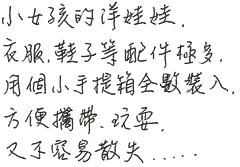 小女孩的洋娃娃,
衣服,鞋子等配件極多,
用個小手提箱全數裝入,
方便攜帶、玩耍,
又不容易散失.....